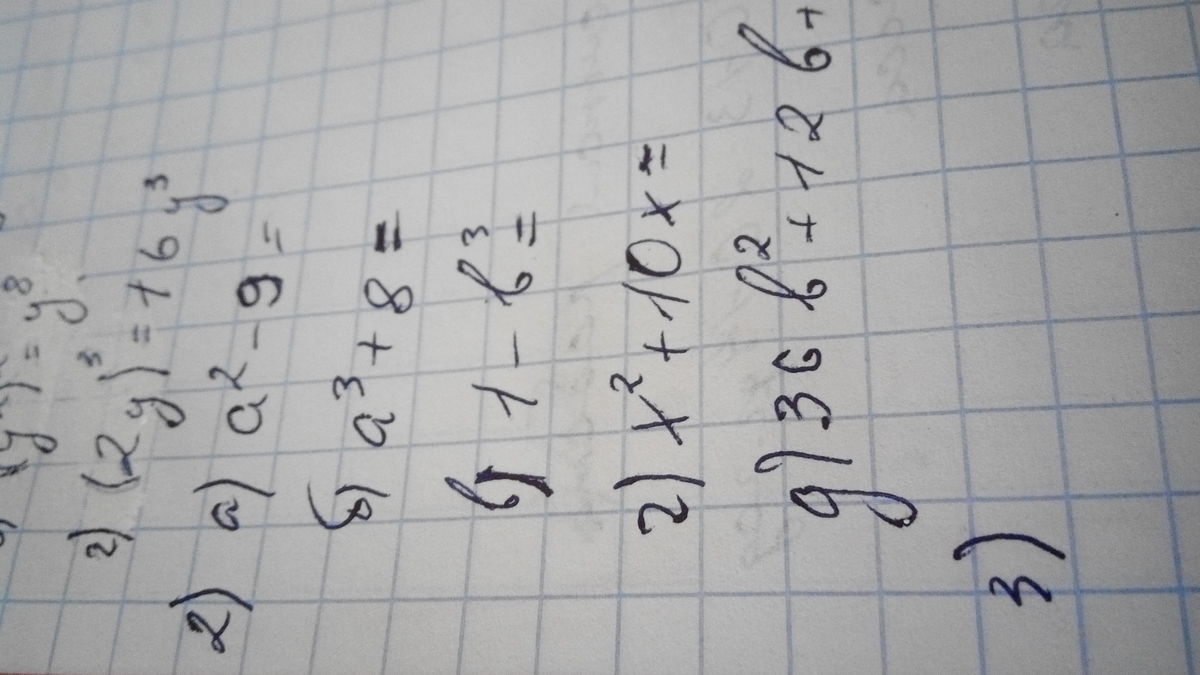 (y⁴)² = y⁸
г) (2y)³ = +6y³
2) а) a² - 9 =
б) a³ + 8 =
в) 1 - b³ =
г) x² + 10x =
д) 36b² + 12b +
3)